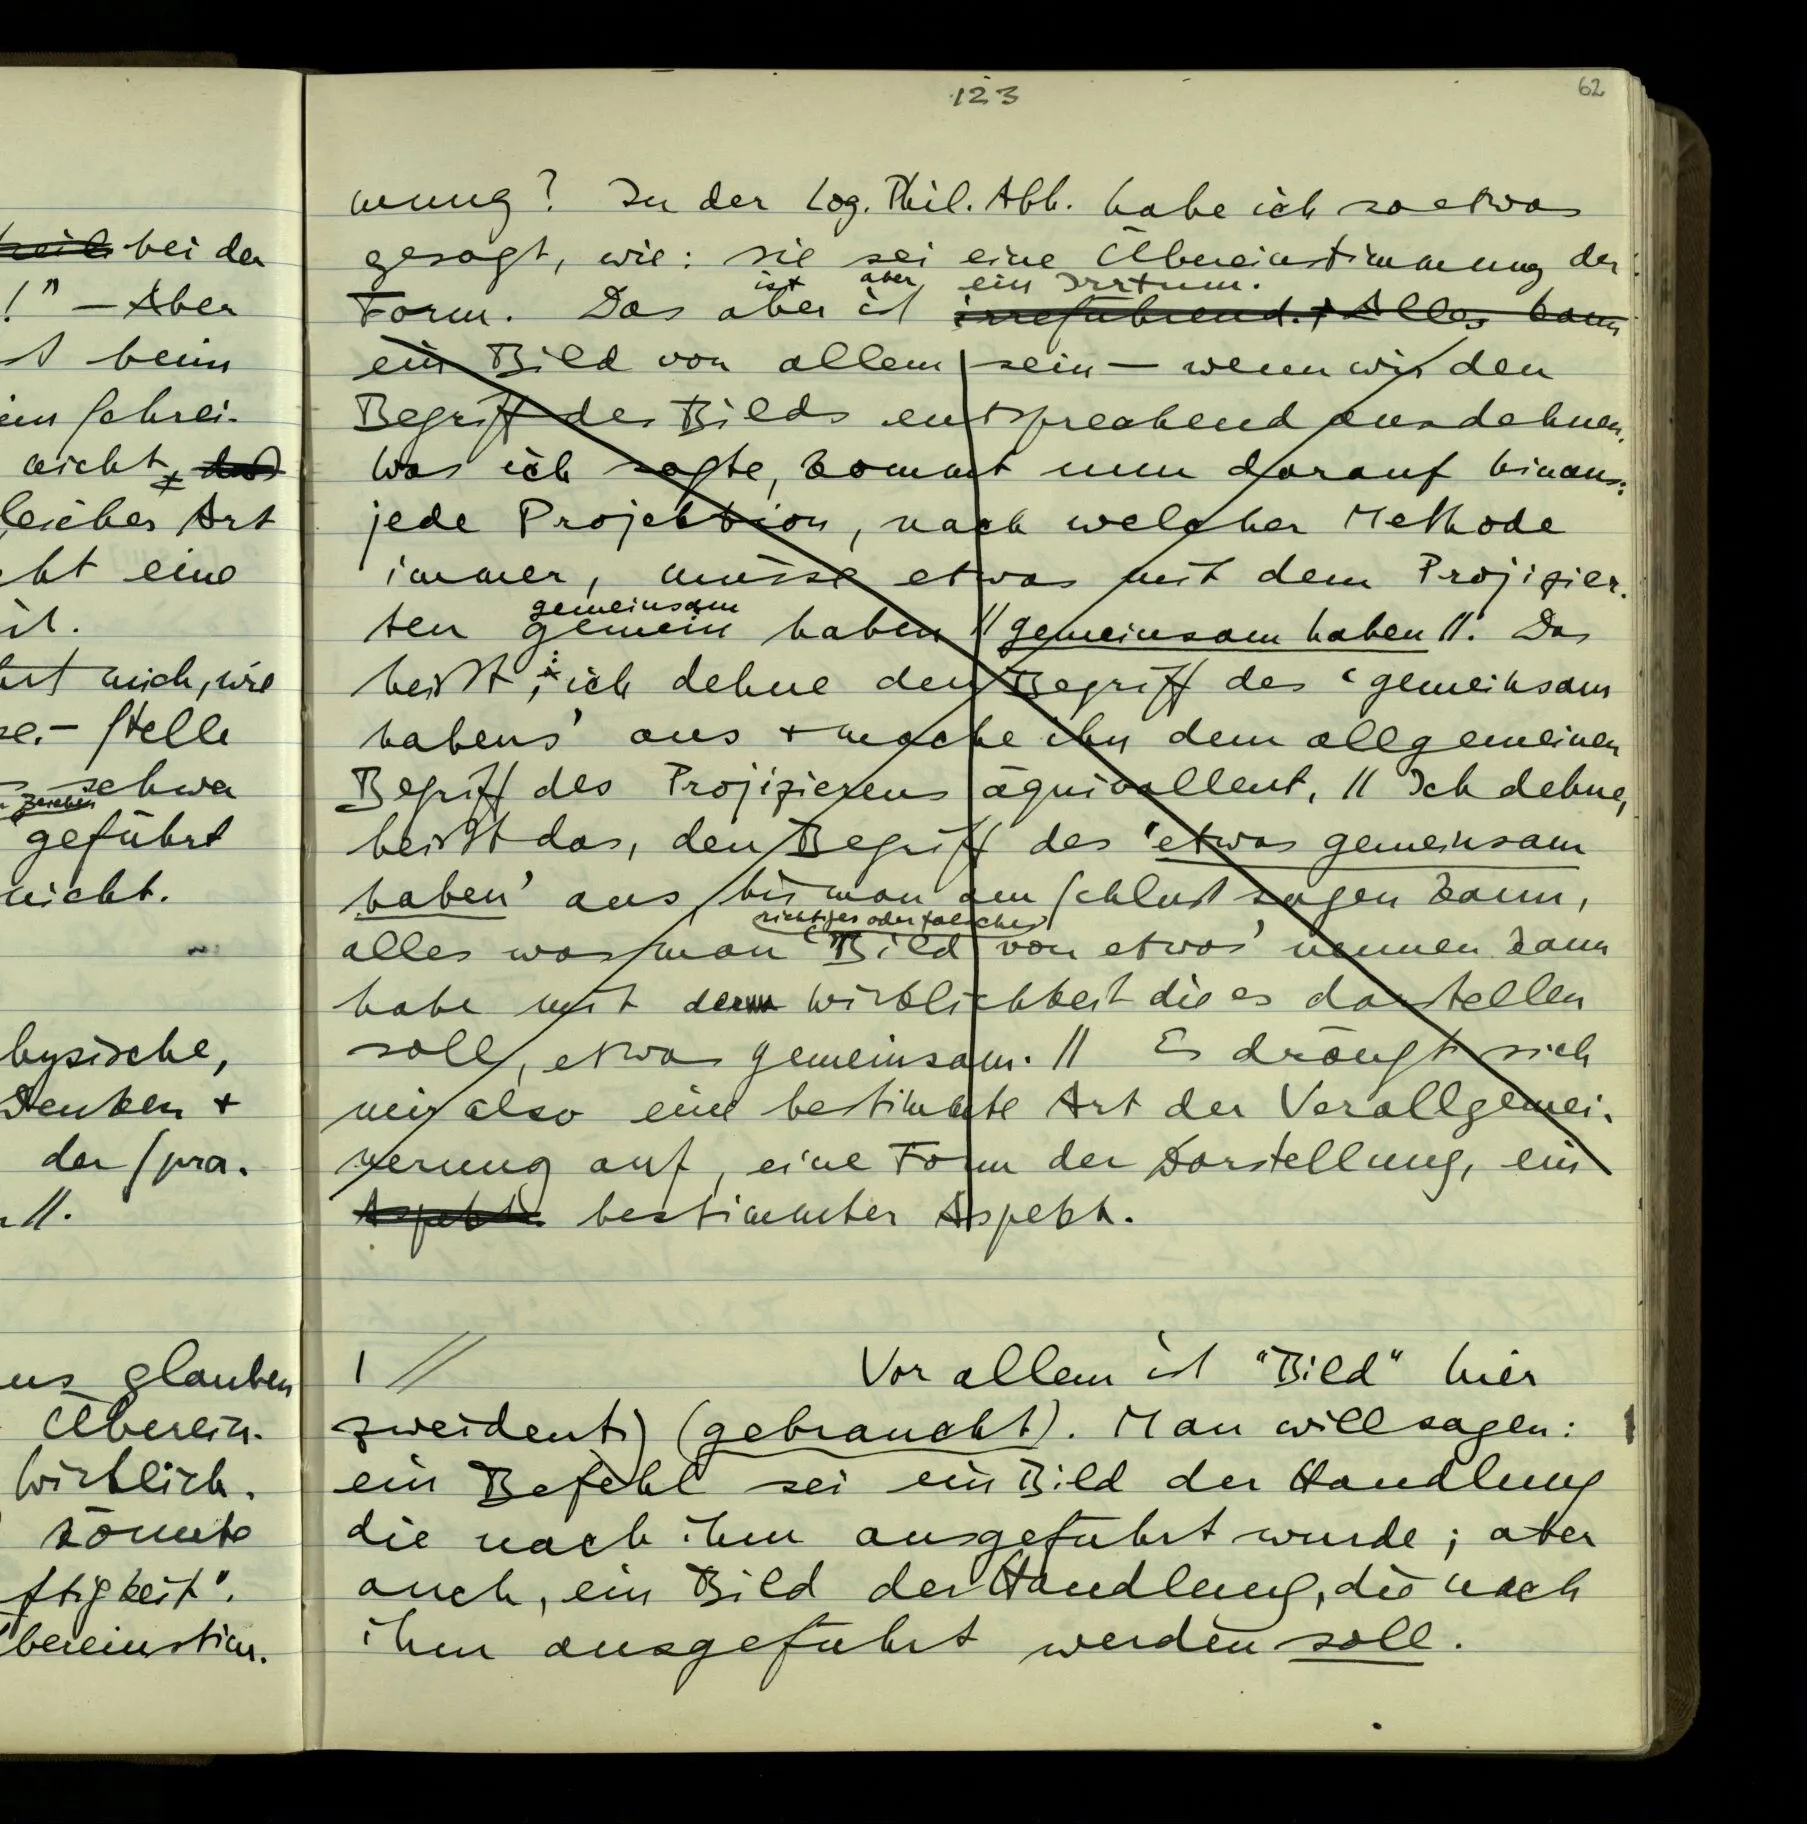 123
62
beim bei der
!" – Aber
beim
schrei-
nicht, das
Art
eine
mich, wie
Stelle
schwer
Zeichen
geführt
nicht.
physische,
Denken +
der Spra-
//.
uns glauben
Überein-
wirklich.
könnte
ftigkeit".
bereinstim-
mung? In der Log. Phil. Abh. habe ich so etwas
gesagt, wie: sie sei eine Übereinstimmung der
ist aber ein Irrtum.
Form. Das aber ist irreführend. + Alles kann
ein Bild von allem sein – wenn wir den
Begriff des Bilds entsprechend ausdehnen.
Was ich sagte, kommt nun darauf hinaus:
jede Projektion, nach welcher Methode
immer, müsse etwas mit dem Projizier-
gemeinsam
ten gemein haben // gemeinsam haben //. Das
heißt, ich dehne den Begriff des 'gemeinsam
habens' aus + mache ihn dem allgemeinen
Begriff des Projizierens äquivallent, // Ich dehne,
heißt das, den Begriff des 'etwas gemeinsam
haben' aus bis man am Schluß sagen kann,
richtiges oder falsches
alles was man 'Bild von etwas' nennen kann
habe mit der Wirklichkeit die es darstellen
soll, etwas gemeinsam. // Es drängt sich
mir also eine bestimmte Art der Verallgemei-
nerung auf, eine Form der Darstellung, ein
Aspekt bestimmter Aspekt.
| // Vor allem ist "Bild" hier
zweideutig (gebraucht). Man will sagen:
ein Befehl sei ein Bild der Handlung
die nach ihm ausgeführt wurde; aber
auch, ein Bild der Handlung, die nach
ihm ausgeführt werden soll.